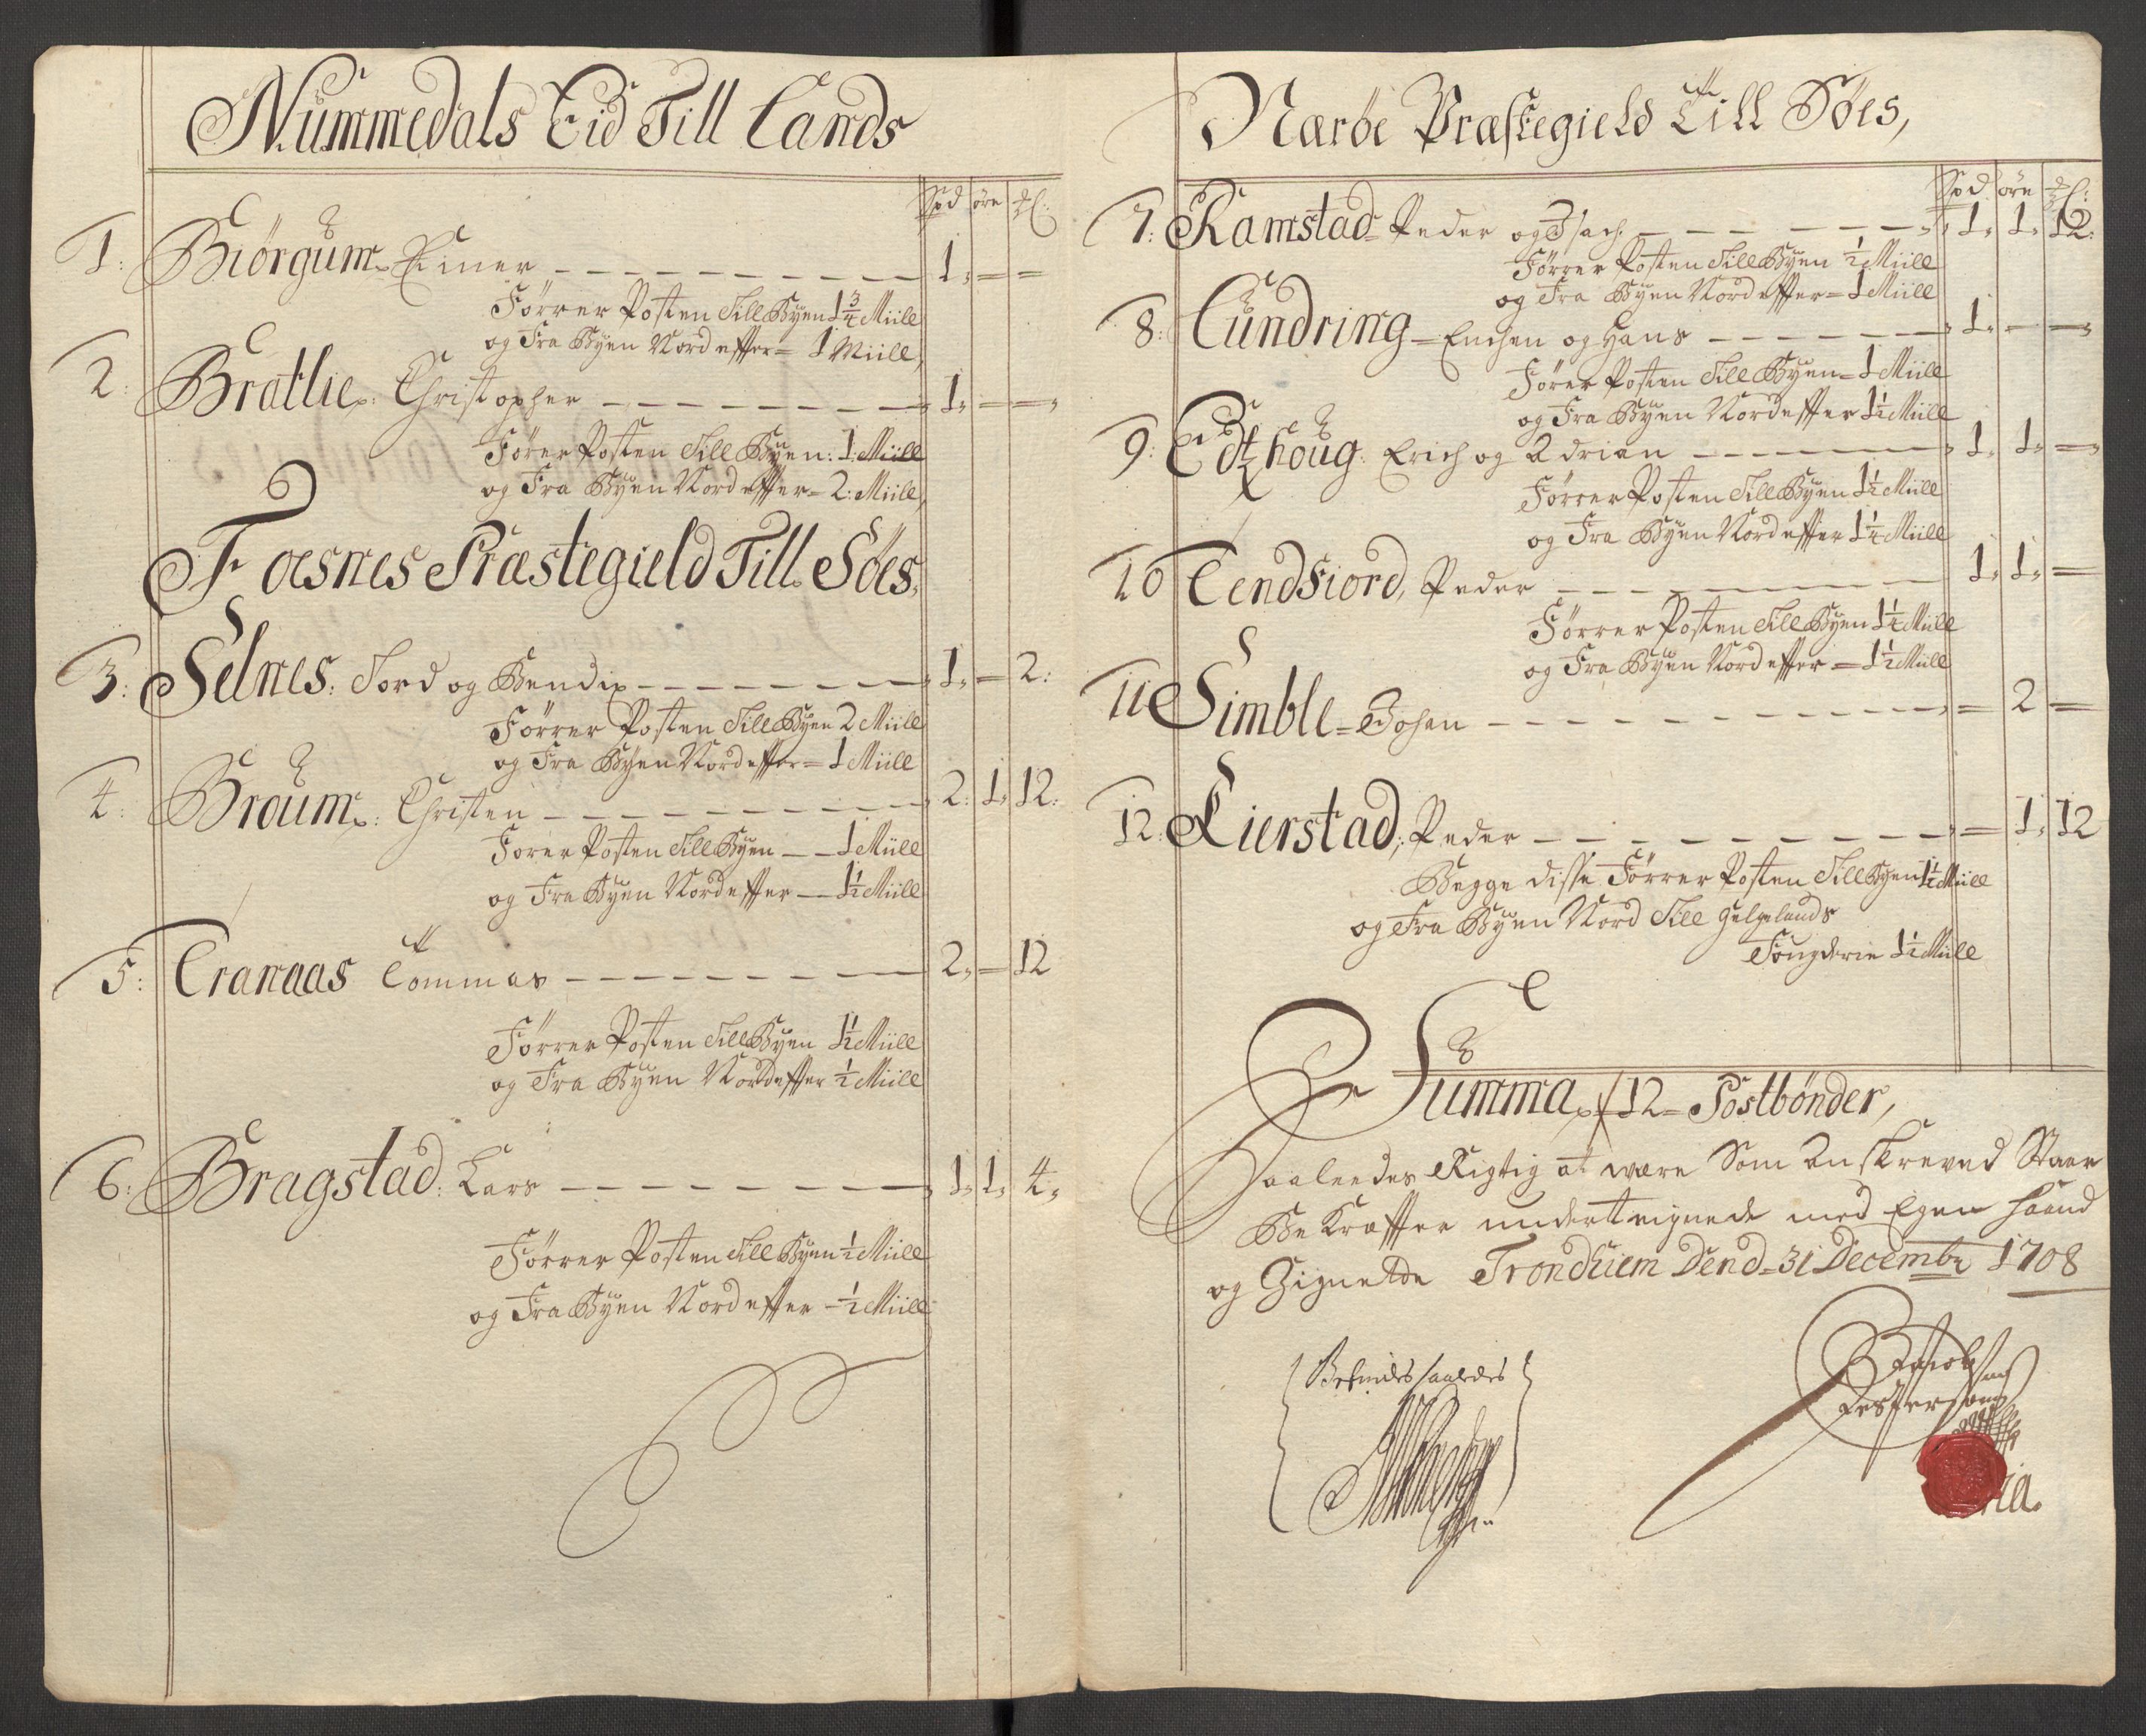 Nummedals Eid Till Lands
Spd öre ₰l:
1: Biörgum Einer 1 = =
Förrer Posten Till Byen 1¾ Miill
og Fra Byen Nord effter = 1 Miill,
2: Bratlie: Christopher 1 = =
Förer Posten Till Byen: 1: Miill
og Fra Byen Nord effter = 2: Miill,
Foesnes Præstegield Till Söes,
3: Selnes: Tord og Bendix 1 = 2:
Förrer Posten Till Byen 2 Miill
og Fra Byen Nord effter = 1 Miill
4: Broum: Christen 2: 1: 12:
Forer Posten Till Byen 1 Miill
og Fra Byen Nord effter 1½ Miill
5: Tranaas Tommas 2 = 12
Förrer Posten Till Byen 1½ Miill
og Fra Byen Nord effter ½ Miill
6: Bragstad: Lars 1: 1: 4:
Förrer Posten Till Byen ½ Miill
og Fra Byen Nord effter ½ Miill
Næröe Præstegield Till Söes,
Spd öre ₰l:
7: Ramstad = Peder og Isach 1: 1: 12:
Förrer Posten Till Byen ½ Miill
og Fra Byen Nord effter = 1 Miill
8: Lundring = Enchen og Hans 1: = =
Förer Posten Till Byen = 1 Miill
og Fra Byen Nord effter 1½ Miill
9: Edtzhoug: Erich og Adrian 1: 1: =
Förrer Posten Till Byen 1½ Miill
og Fra Byen Nord effter 1¼ Miill
10 Tendfiord, Peder 1: 1: =
Förrer Posten Till Byen 1¼ Miill
og Fra Byen Nord effter = 1½ Miill
11 Simble = Johan = 2 =
12: Kierstad, Peder = 1: 12
Begge disse Förrer Posten Till Byen 1½ Miill
og Fra Byen Nord Till Helgelands
Fougderie 1½ Miill
Summa 12 = Postbönder,
Saaleedes Rigtig at være Som Anskreved Staar
Bekræffter undertegnede med Egen Haand
og Zignette Trondhiem Dend = 31 Decembr 1708
Befindes saaledes